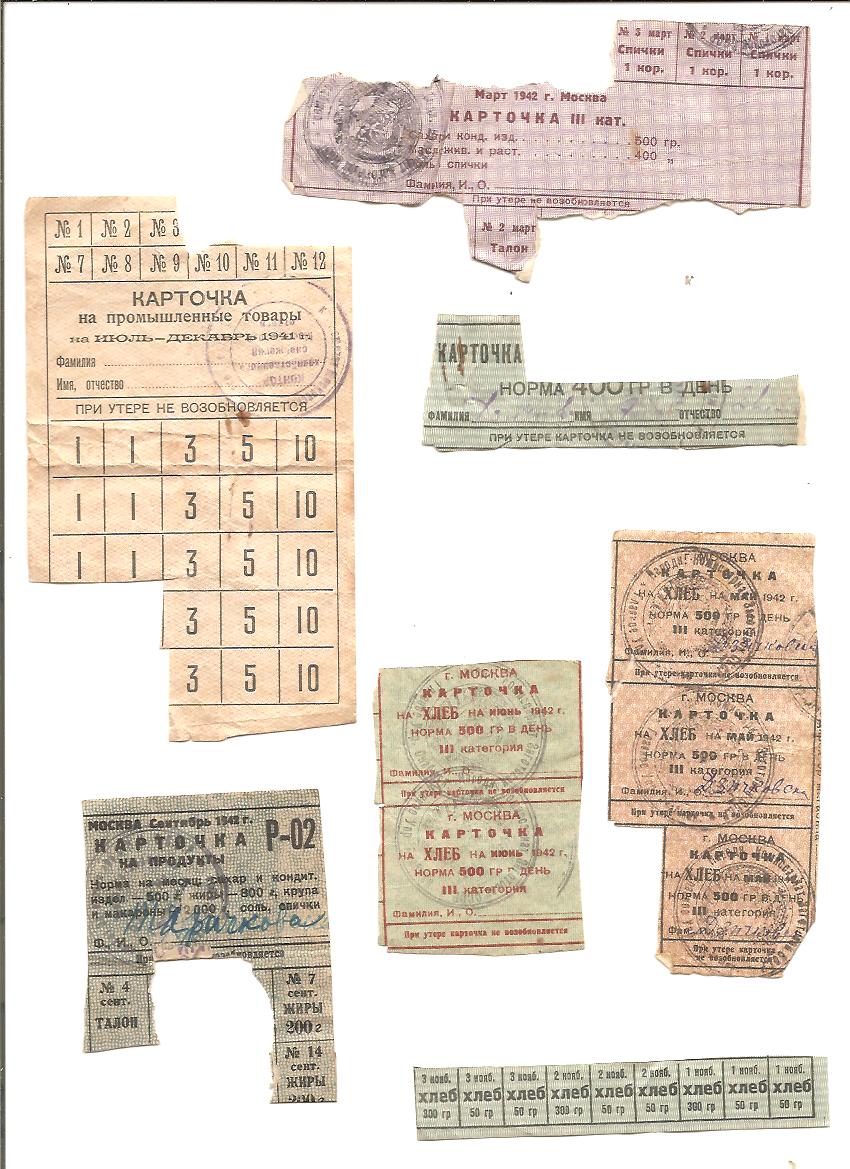 № 3 март № 2 март № 1 март
Спички Спички Спички
1 кор. 1 кор. 1 кор.
Март 1942 г. Москва
КАРТОЧКА III кат.
конд. изд. . . . . . . . . . . 500 гр.
жив. и раст. . . . . . . . . . 400 "
спички
Фамилия, И., О.
При утере не возобновляется
№ 2 март
Талон
№ 1 № 2 № 3
№ 7 № 8 № 9 № 10 № 11 № 12
КАРТОЧКА
на промышленные товары
на ИЮЛЬ—ДЕКАБРЬ 1941 г.
Фамилия
Имя, отчество
ПРИ УТЕРЕ НЕ ВОЗОБНОВЛЯЕТСЯ
1 1 3 5 10
1 1 3 5 10
1 1 3 5 10
3 5 10
3 5 10
КАРТОЧКА
НОРМА 400 ГР В ДЕНЬ
ФАМИЛИЯ ИМЯ ОТЧЕСТВО
ПРИ УТЕРЕ КАРТОЧКА НЕ ВОЗОБНОВЛЯЕТСЯ
г. МОСКВА
КАРТОЧКА
НА ХЛЕБ НА МАЙ 1942 г.
НОРМА 500 ГР В ДЕНЬ
III категория
Фамилия, И., О.
При утере карточка не возобновляется
г. МОСКВА
КАРТОЧКА
НА ХЛЕБ НА МАЙ 1942 г.
НОРМА 500 ГР В ДЕНЬ
III категория
Фамилия, И., О.
При утере карточка не возобновляется
г. МОСКВА
КАРТОЧКА
НА ХЛЕБ НА МАЙ 1942 г.
НОРМА 500 ГР В ДЕНЬ
III категория
Фам., И., О.
При утере карточка
не возобновляется
г. МОСКВА
КАРТОЧКА
НА ХЛЕБ НА ИЮНЬ 1942 г.
НОРМА 500 ГР В ДЕНЬ
III категория
Фамилия, И., О.
При утере карточка не возобновляется
г. МОСКВА
КАРТОЧКА
НА ХЛЕБ НА ИЮНЬ 1942 г.
НОРМА 500 ГР В ДЕНЬ
III категория
Фамилия, И., О.
При утере карточка не возобновляется
МОСКВА Сентябрь 1942 г.
КАРТОЧКА Р-02
НА ПРОДУКТЫ
Норма на месяц: сахар и кондит.
издел — 500 г. жиры — 800 г., крупа
и макароны 2000 г. соль, спички
Ф., И., О.
№ 4
сент.
ТАЛОН
№ 7
сент.
ЖИРЫ
200 г
№ 14
сент.
ЖИРЫ
200 г
3 нояб. 3 нояб. 3 нояб. 2 нояб. 2 нояб. 2 нояб. 1 нояб. 1 нояб. 1 нояб.
хлеб хлеб хлеб хлеб хлеб хлеб хлеб хлеб хлеб
300 гр 50 гр 50 гр 300 гр 50 гр 50 гр 300 гр 50 гр 50 гр